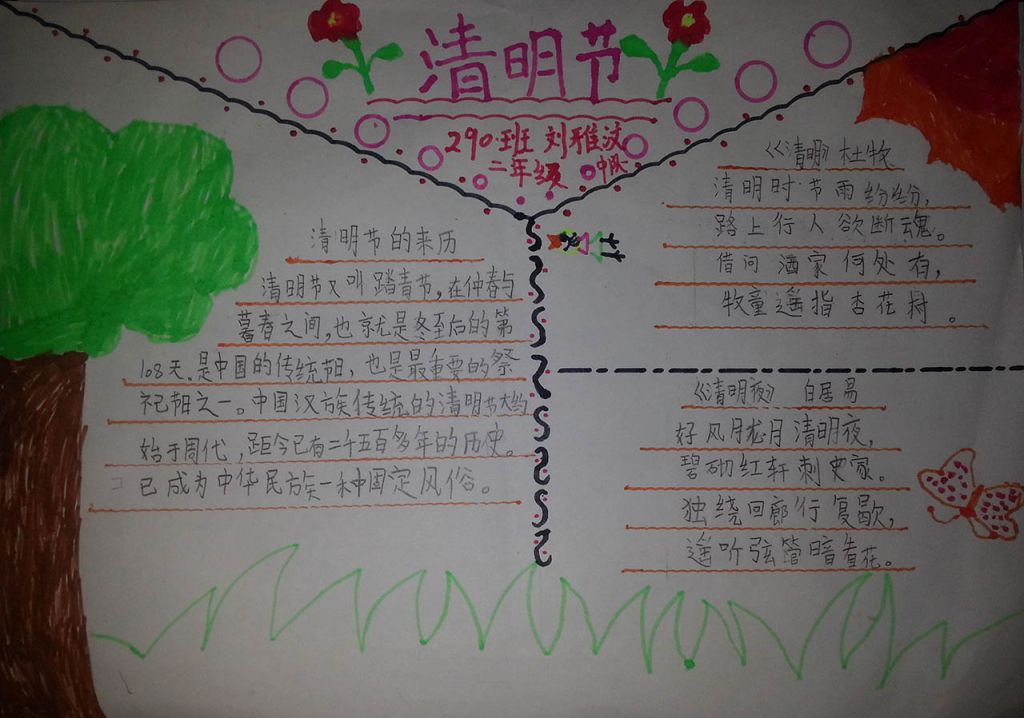 清明节
290班 刘雅汶
二年级 中队
清明节的来历
清明节又叫踏青节,在仲春与
暮春之间,也就是冬至后的第
108天.是中国的传统节日,也是最重要的祭
祀节日之一。中国汉族传统的清明节大约
始于周代,距今已有二千五百多年的历史。
已成为中华民族一种固定风俗。
《清明》杜牧
清明时节雨纷纷,
路上行人欲断魂。
借问酒家何处有,
牧童遥指杏花村。
《清明夜》 白居易
好风胧月清明夜,
碧砌红轩刺史家。
独绕回廊行复歇,
遥听弦管暗看花。